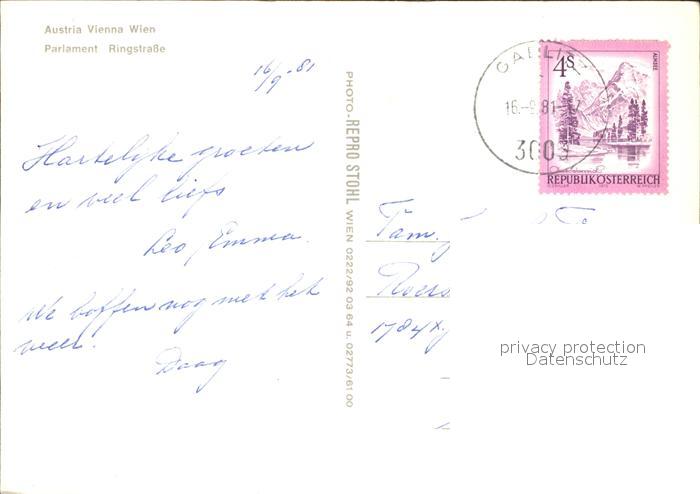 Austria Vienna Wien
Parlament Ringstraße
16/9-81
Hartelijke groeten
en veel liefs
Leo, Emma.
We boffen nog met het
weer.
Daag
PHOTO-REPRO STOHL WIEN 0222/92 03 64 u. 02773/61 00
16.-9.81-17
3003
4S
ALMSEE
REPUBLIK ÖSTERREICH
Fam.
Roers
1784x
privacy protection
Datenschutz